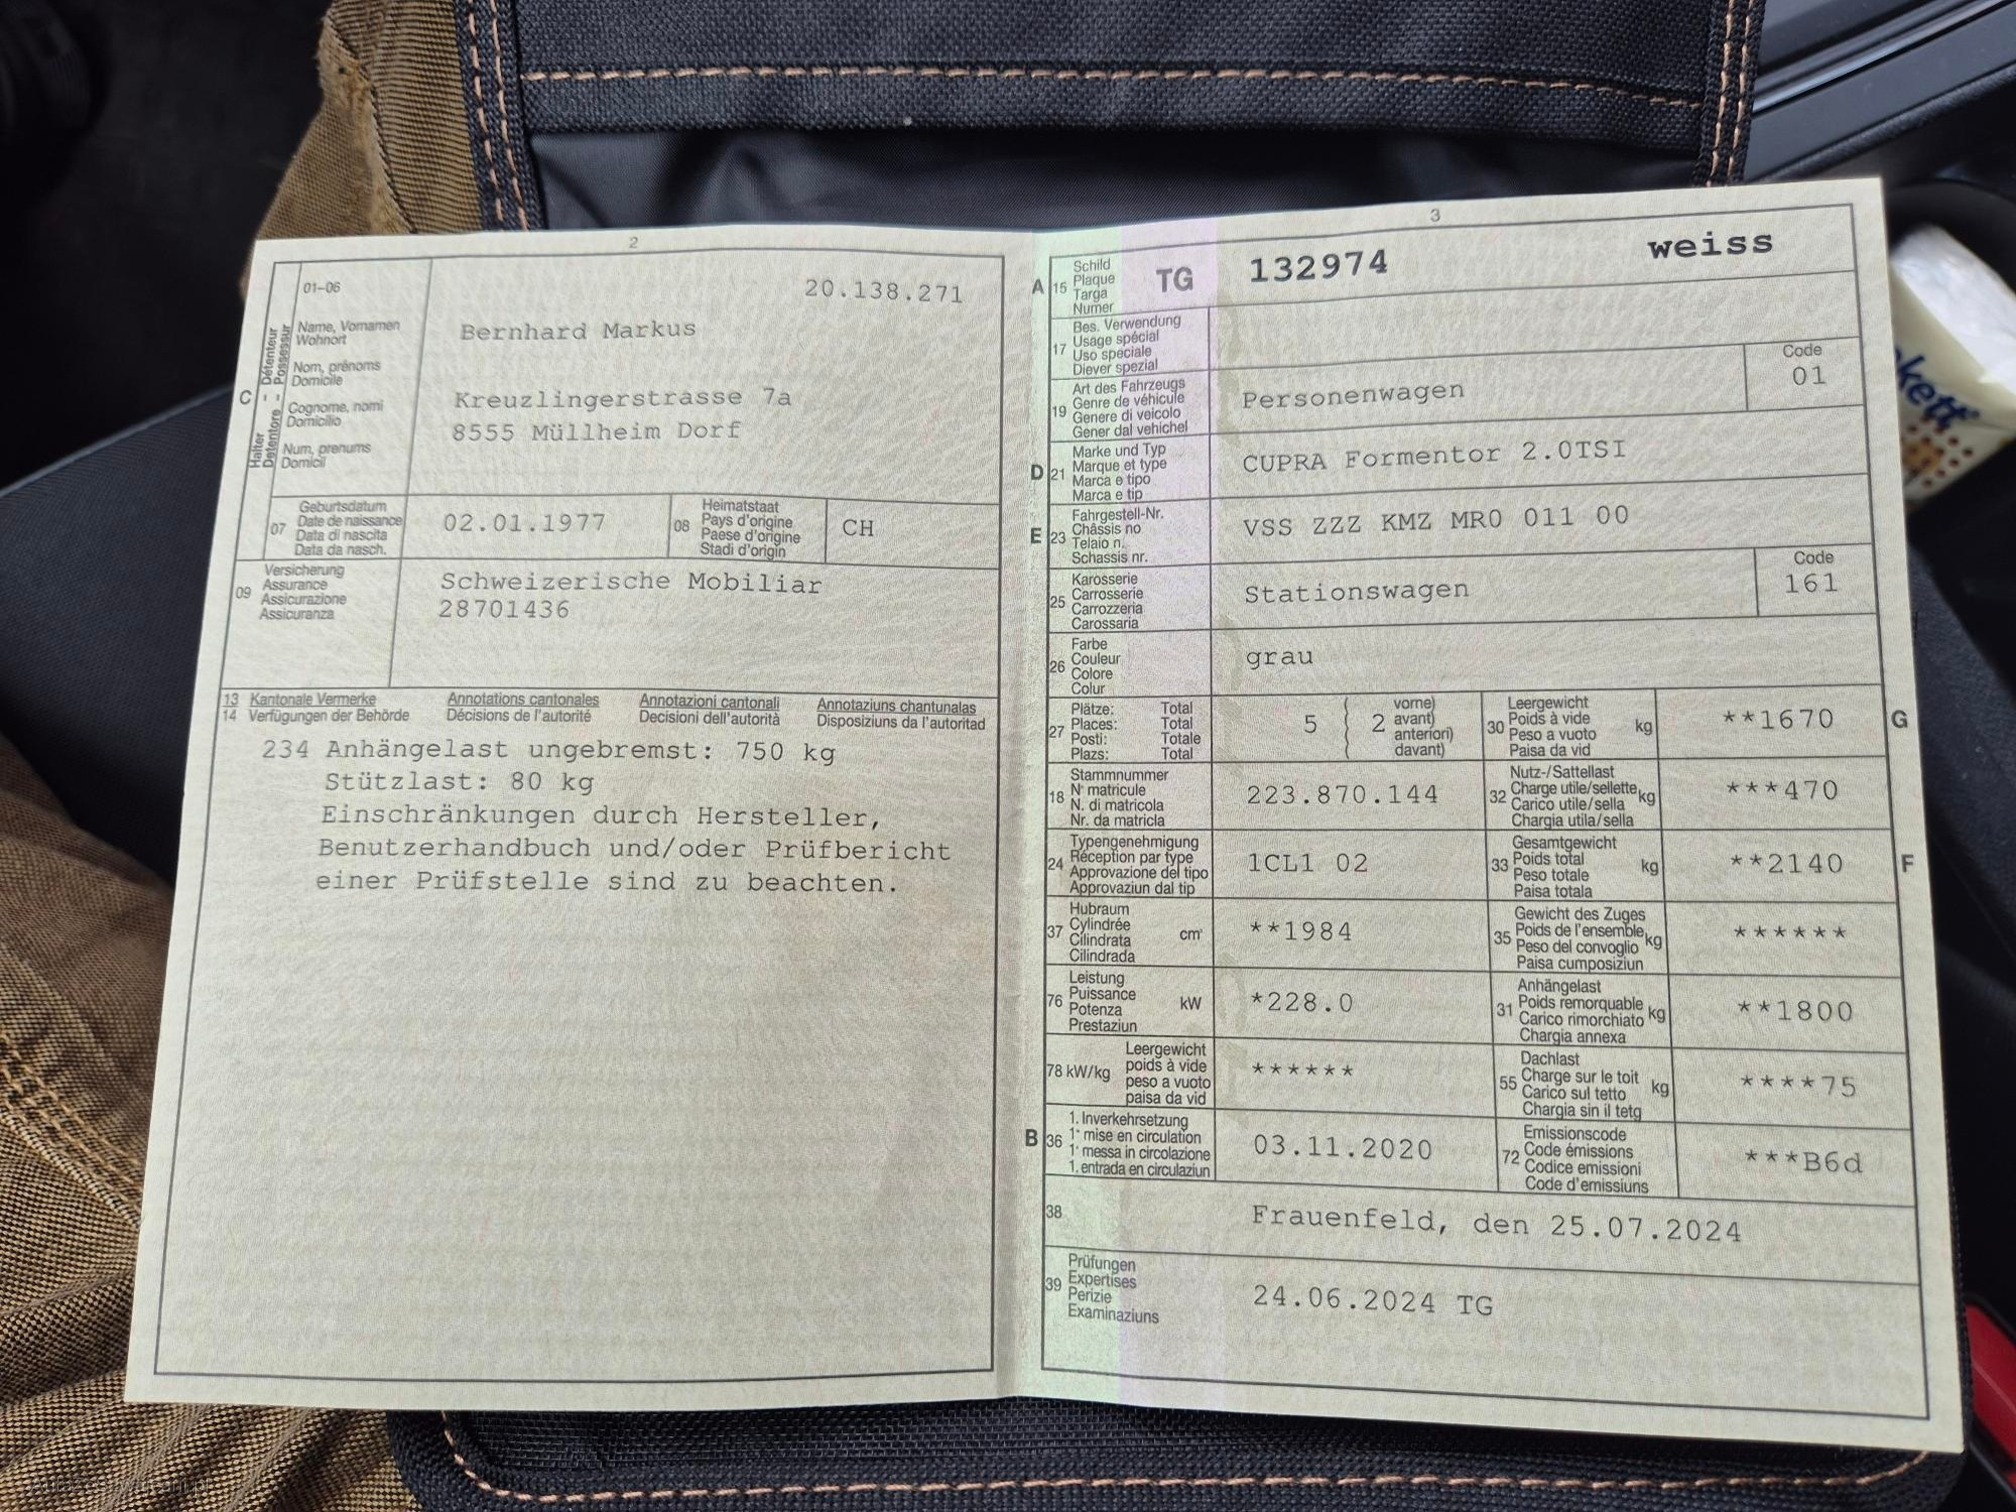 2
01-06
20.138.271
C
Halter - Détenteur
Detentore - Possessur
Name, Vornamen
Wohnort
Nom, prénoms
Domicile
Cognome, nomi
Domicilio
Num, prenums
Domicil
Bernhard Markus
Kreuzlingerstrasse 7a
8555 Müllheim Dorf
07
Geburtsdatum
Date de naissance
Data di nascita
Data da nasch.
02.01.1977
08
Heimatstaat
Pays d'origine
Paese d'origine
Stadi d'origin
CH
09
Versicherung
Assurance
Assicurazione
Assicuranza
Schweizerische Mobiliar
28701436
13 Kantonale Vermerke Annotations cantonales Annotazioni cantonali Annotaziuns chantunalas
14 Verfügungen der Behörde Décisions de l'autorité Decisioni dell'autorità Disposiziuns da l'autoritad
234 Anhängelast ungebremst: 750 kg
Stützlast: 80 kg
Einschränkungen durch Hersteller,
Benutzerhandbuch und/oder Prüfbericht
einer Prüfstelle sind zu beachten.
3
A 15
Schild
Plaque
Targa
Numer
TG 132974 weiss
17
Bes. Verwendung
Usage spécial
Uso speciale
Diever spezial
19
Art des Fahrzeugs
Genre de véhicule
Genere di veicolo
Gener dal vehichel
Personenwagen
Code
01
D 21
Marke und Typ
Marque et type
Marca e tipo
Marca e tip
CUPRA Formentor 2.0TSI
E 23
Fahrgestell-Nr.
Châssis no
Telaio n.
Schassis nr.
VSS ZZZ KMZ MR0 011 00
25
Karosserie
Carrosserie
Carrozzeria
Carossaria
Stationswagen
Code
161
26
Farbe
Couleur
Colore
Colur
grau
27
Plätze: Total
Places: Total
Posti: Totale
Plazs: Total
5 ( 2
vorne)
avant)
anteriori)
davant)
30
Leergewicht
Poids à vide
Peso a vuoto
Paisa da vid
kg
**1670
G
18
Stammnummer
N° matricule
N. di matricola
Nr. da matricla
223.870.144
32
Nutz-/Sattellast
Charge utile/sellette
Carico utile/sella
Chargia utila/sella
kg
***470
24
Typengenehmigung
Réception par type
Approvazione del tipo
Approvaziun dal tip
1CL1 02
33
Gesamtgewicht
Poids total
Peso totale
Paisa totala
kg
**2140
F
37
Hubraum
Cylindrée
Cilindrata
Cilindrada
cm³
**1984
35
Gewicht des Zuges
Poids de l'ensemble
Peso del convoglio
Paisa cumposiziun
kg
******
76
Leistung
Puissance
Potenza
Prestaziun
kW
*228.0
31
Anhängelast
Poids remorquable
Carico rimorchiato
Chargia annexa
kg
**1800
78 kW/kg
Leergewicht
poids à vide
peso a vuoto
paisa da vid
******
55
Dachlast
Charge sur le toit
Carico sul tetto
Chargia sin il tetg
kg
****75
B 36
1. Inverkehrsetzung
1° mise en circulation
1° messa in circolazione
1. entrada en circulaziun
03.11.2020
72
Emissionscode
Code émissions
Codice emissioni
Code d'emissiuns
***B6d
38
Frauenfeld, den 25.07.2024
39
Prüfungen
Expertises
Perizie
Examinaziuns
24.06.2024 TG